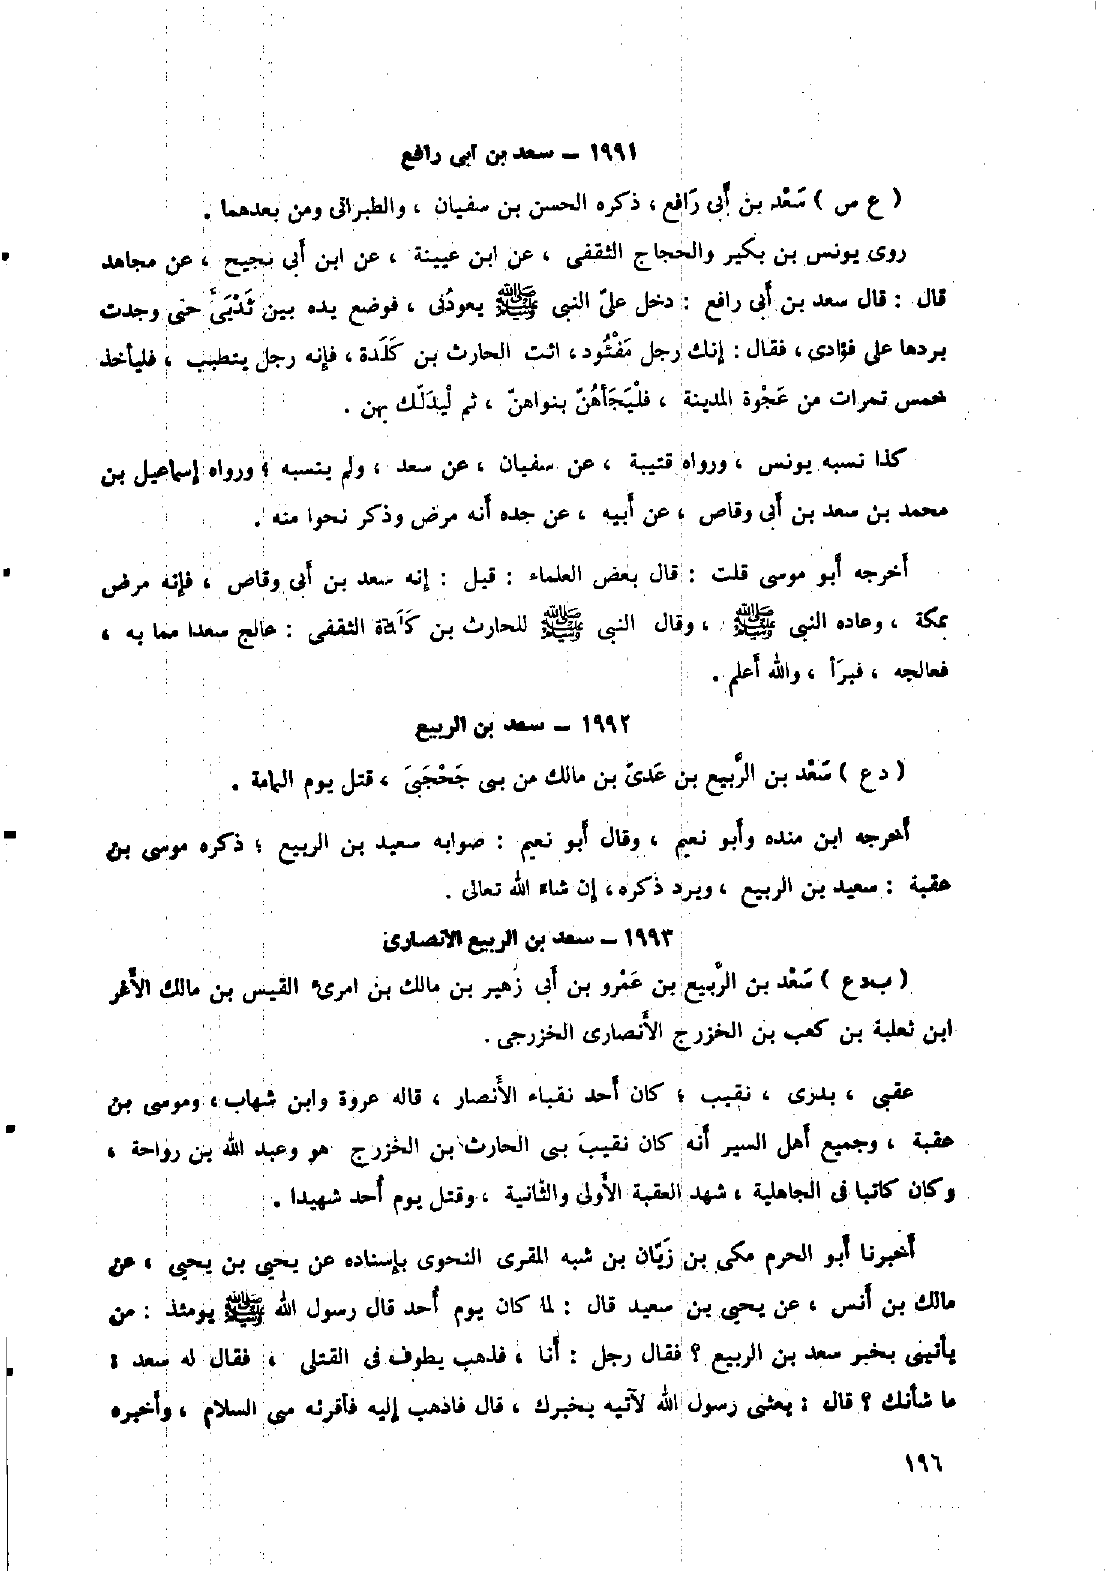 ١٩٩١ – سعد بن أبى رافع
( ع س ) سَعْد بن أَبى رَافع ، ذكره الحسن بن سفيان ، والطبرانى ومن بعدهما .
روى يونس بن بكير والحجاج الثقفى ، عن ابن عيينة ، عن ابن أَبى نجيح ، عن مجاهد
قال : قال سعد بن أَبى رافع : دخل علىّ النبى ﷺ يعودُنى ، فوضع يده بين ثَدْيَىَّ حتى وجدت
بردها على فؤادى ، فقال : إنك رجل مَفْئُود ، ائت الحارث بن كَلَدة ، فإنه رجل يتطبب ، فليأخذ
خمس تمرات من عَجْوة المدينة ، فلْيَجَأهُنّ بنواهنّ ، ثم لْيدَلّك بهن .
كذا نسبه يونس ، ورواه قتيبة ، عن سفيان ، عن سعد ، ولم ينسبه ؛ ورواه إسماعيل بن
محمد بن سعد بن أَبى وقاص ، عن أَبيه ، عن جده أَنه مرض وذكر نحوا منه .
أَخرجه أَبو موسى قلت : قال بعض العلماء : قيل : إنه سعد بن أَبى وقاص ، فإنه مرض
بمكة ، وعاده النبى ﷺ ، وقال النبى ﷺ للحارث بن كَلَدة الثقفى : عالج سعدا مما به ،
فعالجه ، فبرَأ ، والله أَعلم .
١٩٩٢ – سعد بن الربيع
( د ع ) سَعْد بن الرَّبيع بن عَدىّ بن مالك من بنى جَحْجَبَى ، قتل يوم اليمامة .
أَخرجه ابن منده وأَبو نعيم ، وقال أَبو نعيم : صوابه سعيد بن الربيع ؛ ذكره موسى بن
عقبة : سعيد بن الربيع ، ويرد ذكره ، إن شاء الله تعالى .
١٩٩٣ – سعد بن الربيع الأنصارى
( ب د ع ) سَعْد بن الرَّبيع بن عَمْرو بن أَبى زُهير بن مالك بن امرئ القيس بن مالك الأَغر
ابن ثعلبة بن كعب بن الخزرج الأَنصارى الخزرجى .
عقبى ، بدرى ، نقيب ؛ كان أَحد نقباء الأَنصار ، قاله عروة وابن شهاب ، وموسى بن
عقبة ، وجميع أَهل السير أَنه كان نقيبَ بنى الحارث بن الخزرج هو وعبد الله بن رواحة ،
وكان كاتبا فى الجاهلية ، شهد العقبة الأُولى والثانية ، وقتل يوم أُحد شهيدا .
أَخبرنا أَبو الحرم مكى بن زَيَّان بن شبه المقرى النحوى بإسناده عن يحيى بن يحيى ، عن
مالك بن أَنس ، عن يحيى بن سعيد قال : لما كان يوم أُحد قال رسول الله ﷺ يومئذ : من
يأتينى بخبر سعد بن الربيع ؟ فقال رجل : أَنا ، فذهب يطوف فى القتلى ، فقال له سعد :
ما شأنك ؟ قال : بعثنى رسول الله لآتيه بخبرك ، قال فاذهب إليه فأقرئه منى السلام ، وأخبره
١٩٦